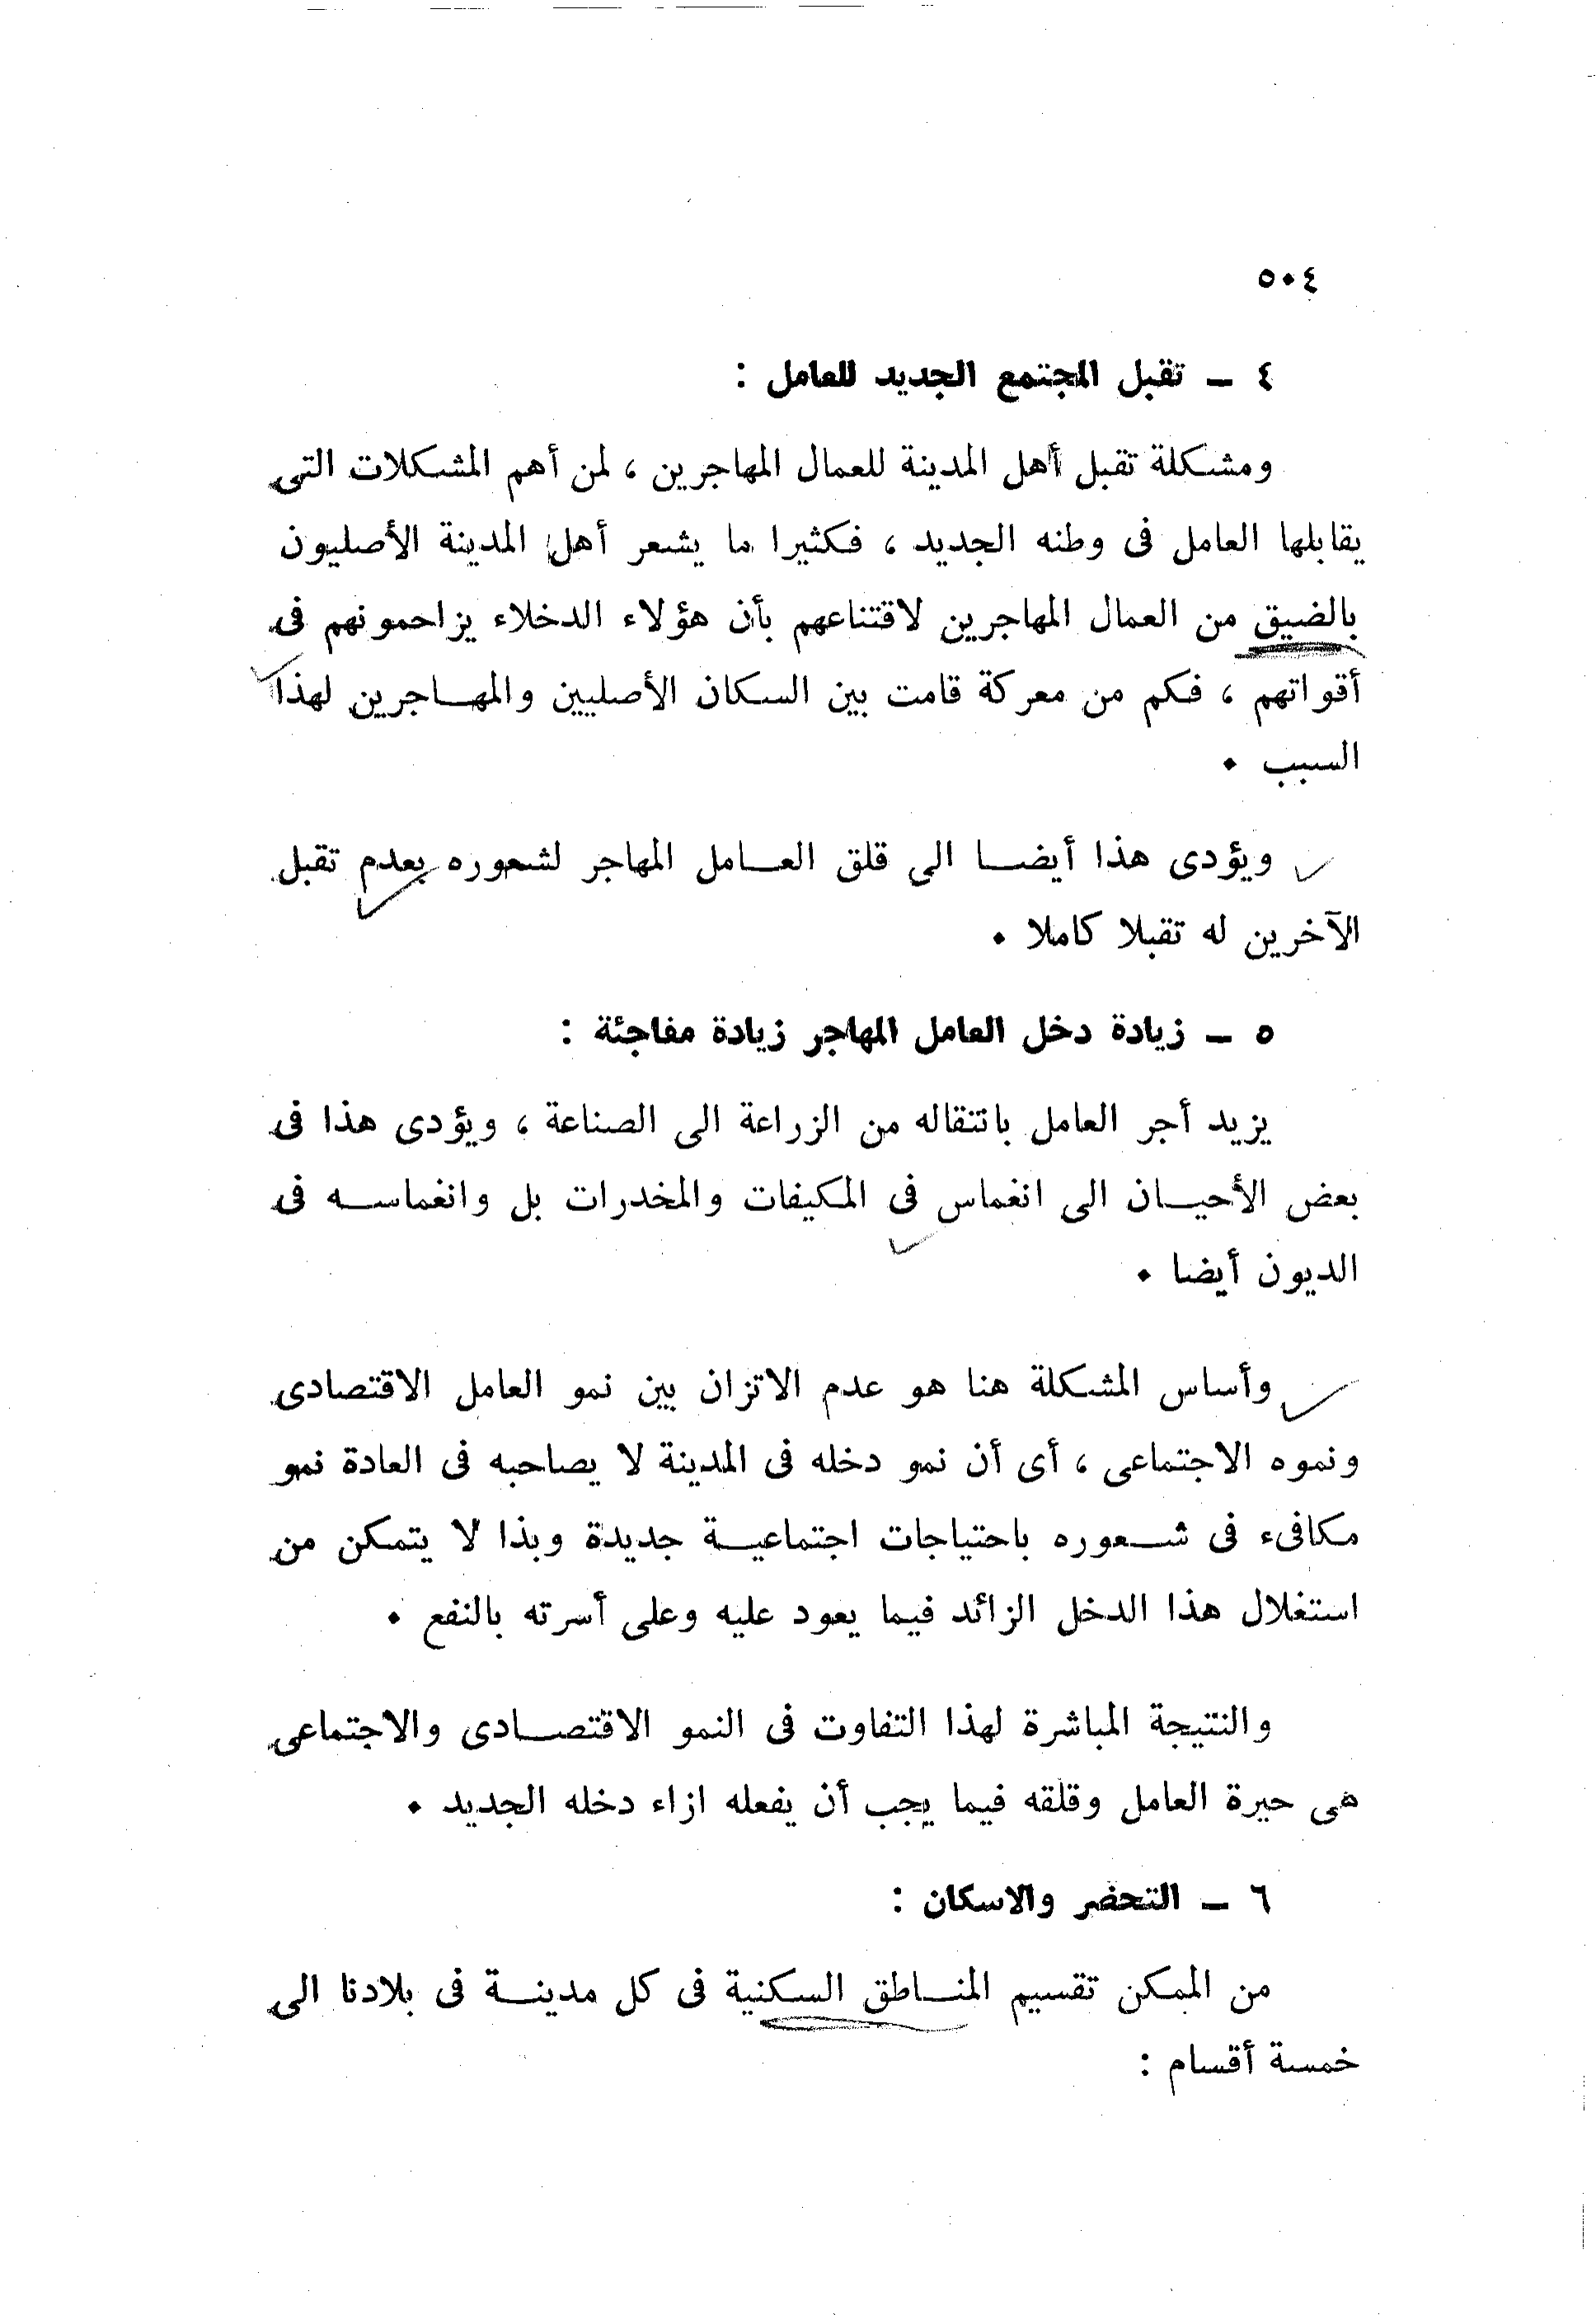 ٥٠٤
٤ ـ تقبل المجتمع الجديد للعامل :
ومشكلة تقبل أهل المدينة للعمال المهاجرين ، لمن أهم المشكلات التى
يقابلها العامل فى وطنه الجديد ، فكثيرا ما يشعر أهل المدينة الأصليون
بالضيق من العمال المهاجرين لاقتناعهم بأن هؤلاء الدخلاء يزاحمونهم فى
أقواتهم ، فكم من معركة قامت بين السكان الأصليين والمهاجرين لهذا
السبب .
ويؤدى هذا أيضا الى قلق العامل المهاجر لشعوره بعدم تقبل
الآخرين له تقبلا كاملا .
٥ ـ زيادة دخل العامل المهاجر زيادة مفاجئة :
يزيد أجر العامل بانتقاله من الزراعة الى الصناعة ، ويؤدى هذا فى
بعض الأحيان الى انغماس فى المكيفات والمخدرات بل وانغماسه فى
الديون أيضا .
وأساس المشكلة هنا هو عدم الاتزان بين نمو العامل الاقتصادى
ونموه الاجتماعى ، أى أن نمو دخله فى المدينة لا يصاحبه فى العادة نمو
مكافىء فى شعوره باحتياجات اجتماعية جديدة وبذا لا يتمكن من
استغلال هذا الدخل الزائد فيما يعود عليه وعلى أسرته بالنفع .
والنتيجة المباشرة لهذا التفاوت فى النمو الاقتصادى والاجتماعى
هى حيرة العامل وقلقه فيما يجب أن يفعله ازاء دخله الجديد .
٦ ـ التحضر والاسكان :
من الممكن تقسيم المناطق السكنية فى كل مدينة فى بلادنا الى
خمسة أقسام :